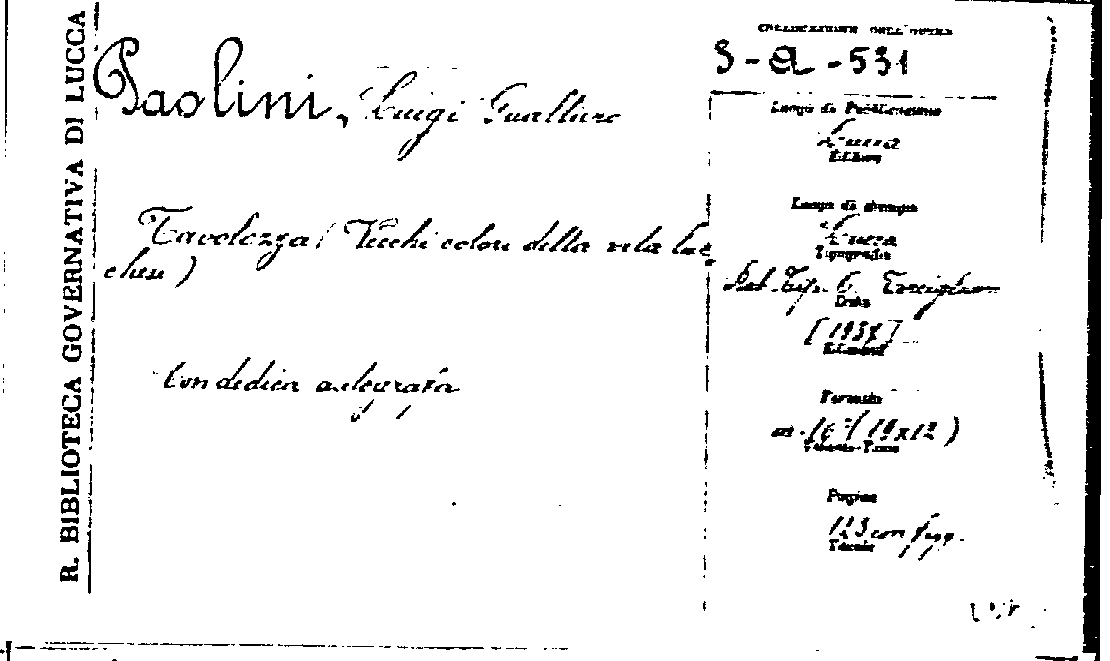 R. BIBLIOTECA GOVERNATIVA DI LUCCA
Paolini, Luigi Gualtiero
Tavolozza (Vecchi colori della vita luc-
chese)
Con dedica autografa
COLLOCAZIONE DELL'OPERA
3-a-531
Luogo di Pubblicazione
Lucca
Editore
Luogo di stampa
Lucca
Tipografia
Tip. G.
Data
[1937]
Edizione
Formato
in-16° (19x12)
Volume-Tomo
Pagine
123 con figg.
Tavole